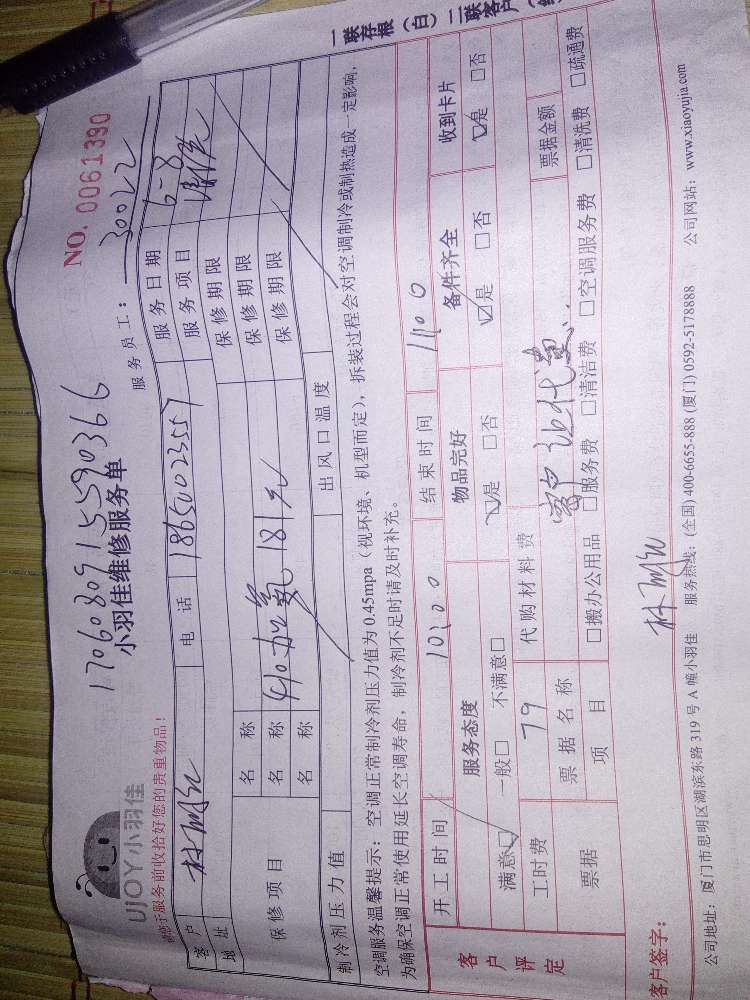 一联存根（白）二联客户
NO. 0061390
17060809155590366
小羽佳维修服务单
服务员工：30022
UJOY小羽佳
请您于服务前收拾好您的贵重物品！
客户
电话 18650023557
服务日期 6-8
地址
服务项目 清洗
保修项目
名称
保修期限
名称 410加氟181元
保修期限
名称
保修期限
制冷剂压力值
出风口温度
空调服务温馨提示：空调正常制冷剂压力值为0.45mpa（视环境、机型而定），拆装过程会对空调制冷或制热造成一定影响，
为确保空调正常使用延长空调寿命，制冷剂不足时请及时补充。
客户评定
开工时间 10:00
结束时间
服务态度
物品完好
备件齐全
收到卡片
满意□ 一般□ 不满意□
□是 □否
□是 □否
□是 □否
工时费 79
代购材料费
票据
票据名称
票据金额
项目
□搬办公用品 □服务费 □清洁费 □空调服务费 □清洗费 □疏通费
客户签字：
公司地址：厦门市思明区湖滨东路319号A幢小羽佳 服务热线：(全国) 400-6655-888 (厦门) 0592-5178888 公司网站：www.xiaoyujia.com